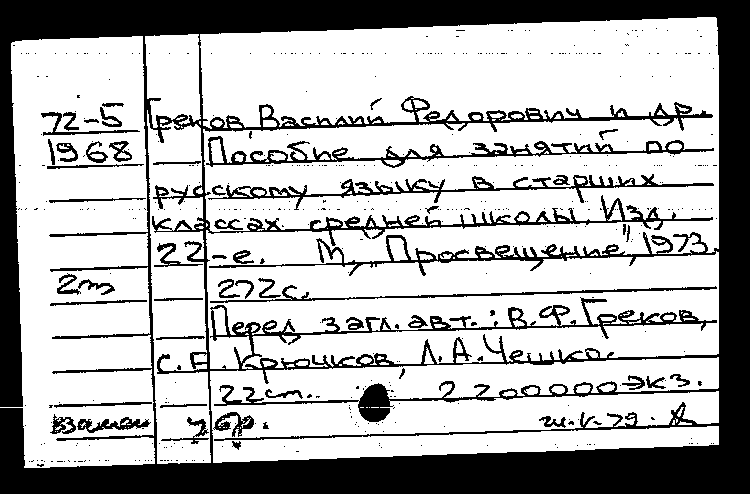 72-5 Греков, Василий Федорович и др.
1968 Пособие для занятий по
русскому языку в старших
классах средней школы. Изд.
22-е. М., "Просвещение", 1973.
2т 272с.
Перед загл. авт.: В.Ф.Греков,
С.Е.Крючков, Л.А.Чешко.
22см. 2200000экз.
взамен